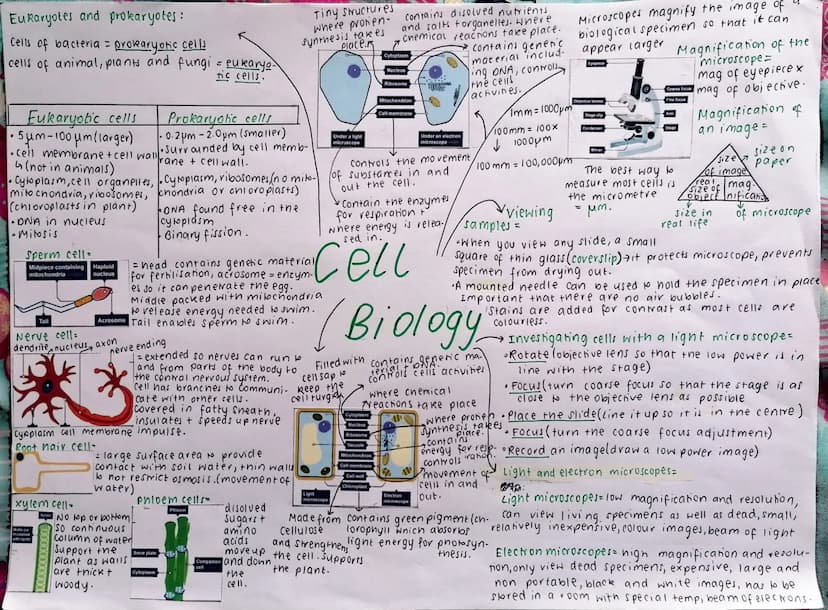 Eukaryotes and prokaryotes:
Cells of bacteria = prokaryotic cells
cells of animal, plants and fungi = eukaryo-
tic cells.
Eukaryotic cells
• 5µm-100µm (larger)
• Cell membrane + cell wall
↳ (not in animals)
• Cytoplasm, cell organelles,
mitochondria, ribosomes,
(chloroplasts in plant)
• DNA in nucleus
• Mitosis
Prokaryotic cells
• 0.2µm - 2.0µm (smaller)
• Surrounded by cell memb-
rane + cell wall.
• Cytoplasm, ribosomes (no mito-
chondria or chloroplasts)
• DNA found free in the
cytoplasm
• Binary fission.
Tiny structures
where protien-
synthesis takes
place.
contains disolved nutrients
and salts + organelles. Where
chemical reactions take place.
contains genetic
material includ-
ing DNA, controls
the cell
activities.
Cytoplasm
Nucleus
Ribosome
Mitochondrion
Cell membrane
Under a light
microscope
Under an electron
microscope
Controls the movement
of substances in and
out the cell.
Contain the enzymes
for respiration +
where energy is relea-
sed in.
Microscopes magnify the image of a
biological specimen so that it can
appear larger
Magnification of the
microscope =
mag of eyepiece x
mag of objective.
Eyepiece
Coarse focus
Fine focus
Objective lenses
Stage clip
Arm
Condenser
Stage
Mirror
1mm = 1000µm
100mm = 100x
1000µm
100mm = 100,000µm
The best way to
measure most cells is
the micrometre =
µm.
Magnification of
an image =
size
of image
real
size of
object
mag-
nification
size on
paper
size in
real life
of microscope
Viewing
samples =
• When you view any slide, a small
square of thin glass (coverslip) → it protects microscope, prevents
specimen from drying out.
• A mounted needle can be used to hold the specimen in place
Important that there are no air bubbles.
• Stains are added for contrast as most cells are
colourless.
Cell
Biology
Sperm cell =
Midpiece containing
mitochondria
Haploid
nucleus
Tail
Acrosome
= Head contains genetic material
for fertilisation, acrosome = enzym-
es so it can penetrate the egg.
Middle packed with mitochondria
to release energy needed to swim.
Tail enables sperm to swim.
Nerve cell =
dendrite, nucleus, axon
nerve ending
cytoplasm cell membrane
= extended so nerves can run to
and from parts of the body to
the central nervous system.
Cell has branches to communi-
cate with other cells.
Covered in fatty sheath,
insulates + speeds up nerve
impulse.
Root hair cell =
= large surface area to provide
contact with soil water, thin walls
to not restrict osmosis. (movement of
water)
xylem cell =
No top or bottom
so continuous
column of water
support the
plant as walls
are thick +
woody.
Phloem cells =
Phloem
Sieve plate
Cytoplasm
Companion
cell
disolved
sugars +
amino
acids
move up
and down
the
cell.
Filled with
cell sap to
keep the
cell turgid
contains genetic ma-
terial + DNA,
controls cells activities
where chemical
reactions take place
where protien
synthesis takes
place.
contains
energy for resp-
iration.
controls
movement of
cells in and
out.
Cytoplasm
Nucleus
Ribosome
Vacuole
Mitochondrion
Cell membrane
Cell wall
Chloroplast
Light
microscope
Electron
microscope
Made from
Cellulose
and strengthens
the cell. Supports
the plant.
Contains green pigment (ch-
lorophyll which absorbs
light energy for photosyn-
thesis.
Investigating cells with a light microscope =
• Rotate (objective lens so that the low power is in
line with the stage)
• Focus (turn coarse focus so that the stage is as
close to the objective lens as possible
• Place the slide (line it up so it is in the centre)
• Focus (turn the coarse focus adjustment)
• Record an image (draw a low power image)
Light and electron microscopes =
Light microscopes = low magnification and resolution,
can view living specimens as well as dead, small,
relatively inexpensive, colour images, beam of light
Electron microscopes = high magnification and resolu-
tion, only view dead specimens, expensive, large and
non portable, black and white images, has to be
stored in a room with special temp, beam of electrons.